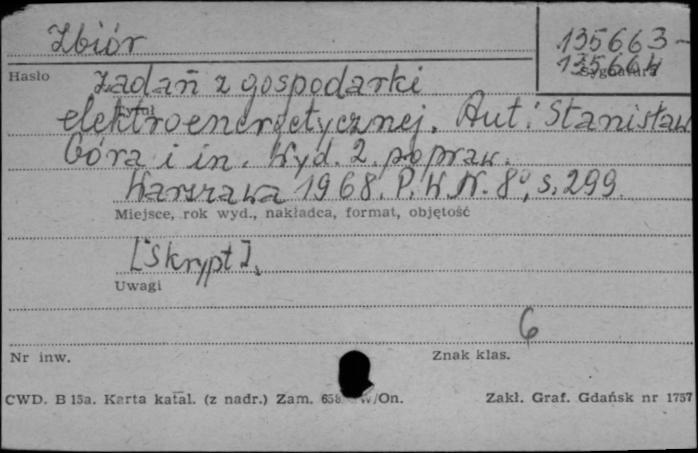 Zbiór
135663-
135664
Sygnatura
Hasło
zadań z gospodarki
Tytuł
elektroenergetycznej. Aut.: Stanisław
Góra i in. Wyd. 2. popraw.
Warszawa 1968. P.W.N. 8°, s. 299.
Miejsce, rok wyd., nakładca, format, objętość
[Skrypt].
Uwagi
6
Nr inw.
Znak klas.
CWD. B 15a. Karta katal. (z nadr.) Zam. 658 W/On.
Zakł. Graf. Gdańsk nr 1757